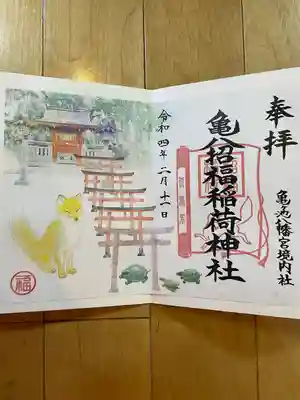 奉拝
亀池八幡宮境内社
亀招福稲荷神社
令和四年二月十一日
福